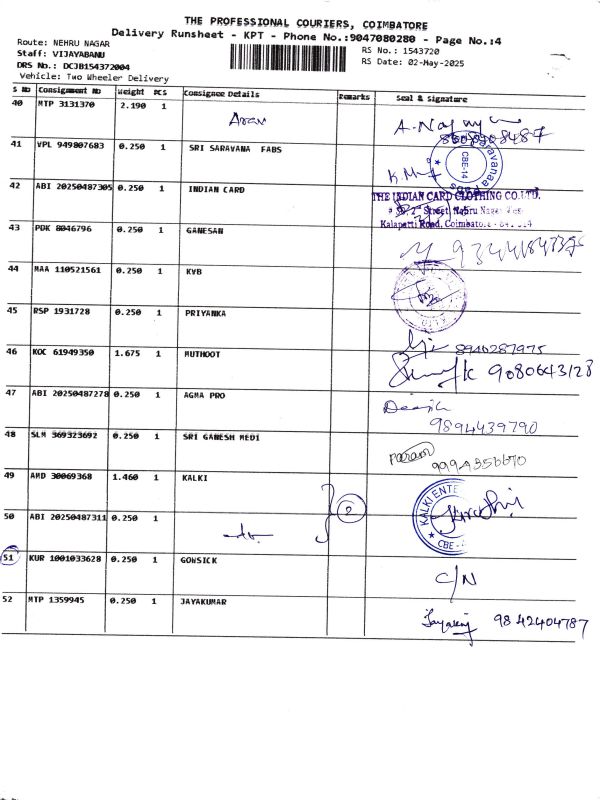 THE PROFESSIONAL COURIERS, COIMBATORE
Delivery Runsheet - KPT - Phone No.:9047080280 - Page No.:4
Route: NEHRU NAGAR
RS No.: 1543720
Staff: VIJAYABANU
RS Date: 02-May-2025
DRS No.: DCJB154372004
Vehicle: Two Wheeler Delivery
S No Consignment No Weight PCS Consignee Details Remarks Seal & Signature
40 MTP 3131370 2.190 1
41 VPL 949807683 0.250 1 SRI SARAVANA FABS
CBE-14
42 ABI 20250487305 0.250 1 INDIAN CARD
THE INDIAN CARD CLOTHING CO.LTD.
43 PDK 8046796 0.250 1 GANESAN
44 MAA 110521561 0.250 1 KVB
45 RSP 1931728 0.250 1 PRIYANKA
8940287975
46 KOC 61949350 1.675 1 MUTHOOT
9080643128
47 ABI 20250487278 0.250 1 AGMA PRO
9894439790
48 SLM 369323692 0.250 1 SRI GANESH MEDI
49 AMD 30069368 1.460 1 KALKI
2
KALKI ENTE
50 ABI 20250487311 0.250 1
CBE
51 KUR 1001033628 0.250 1 GOWSICK
C/N
52 MTP 1359945 0.250 1 JAYAKUMAR
9842404787